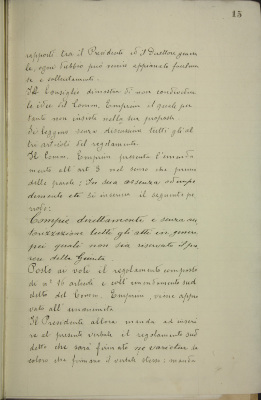 15
rapporti tra il Presidente ed il Direttore genera
le, ogni dubbio può venire appianato facilmen
te e sollecitamente.
Il Consiglio dimostra di non condividere
le idee del Comm. Emprim il quale per
tanto non insiste nella sua proposta.
Si leggono senza discussione tutti gli al
tri articoli del regolamento.
Il Comm. Emprim presenta l'emenda
mento all'art. 8 nel senso che prima
delle parole: In sua assenza od impe
dimento etc si inserisca il seguente pe
riodo:
Compie direttamente e senza au
torizzazione tutti gli atti in genere
pei quali non sia riservato il pa
rere della Giunta.
Posto ai voti il regolamento composto
di n° 16 articoli e coll'emendamento sud
detto del Comm. Emprim, viene appro
vato all'unanimità.
Il Presidente allora manda ad inseri
re al presente verbale il regolamento sud
detto che sarà firmato
coloro che firmano il verbale stesso: manda